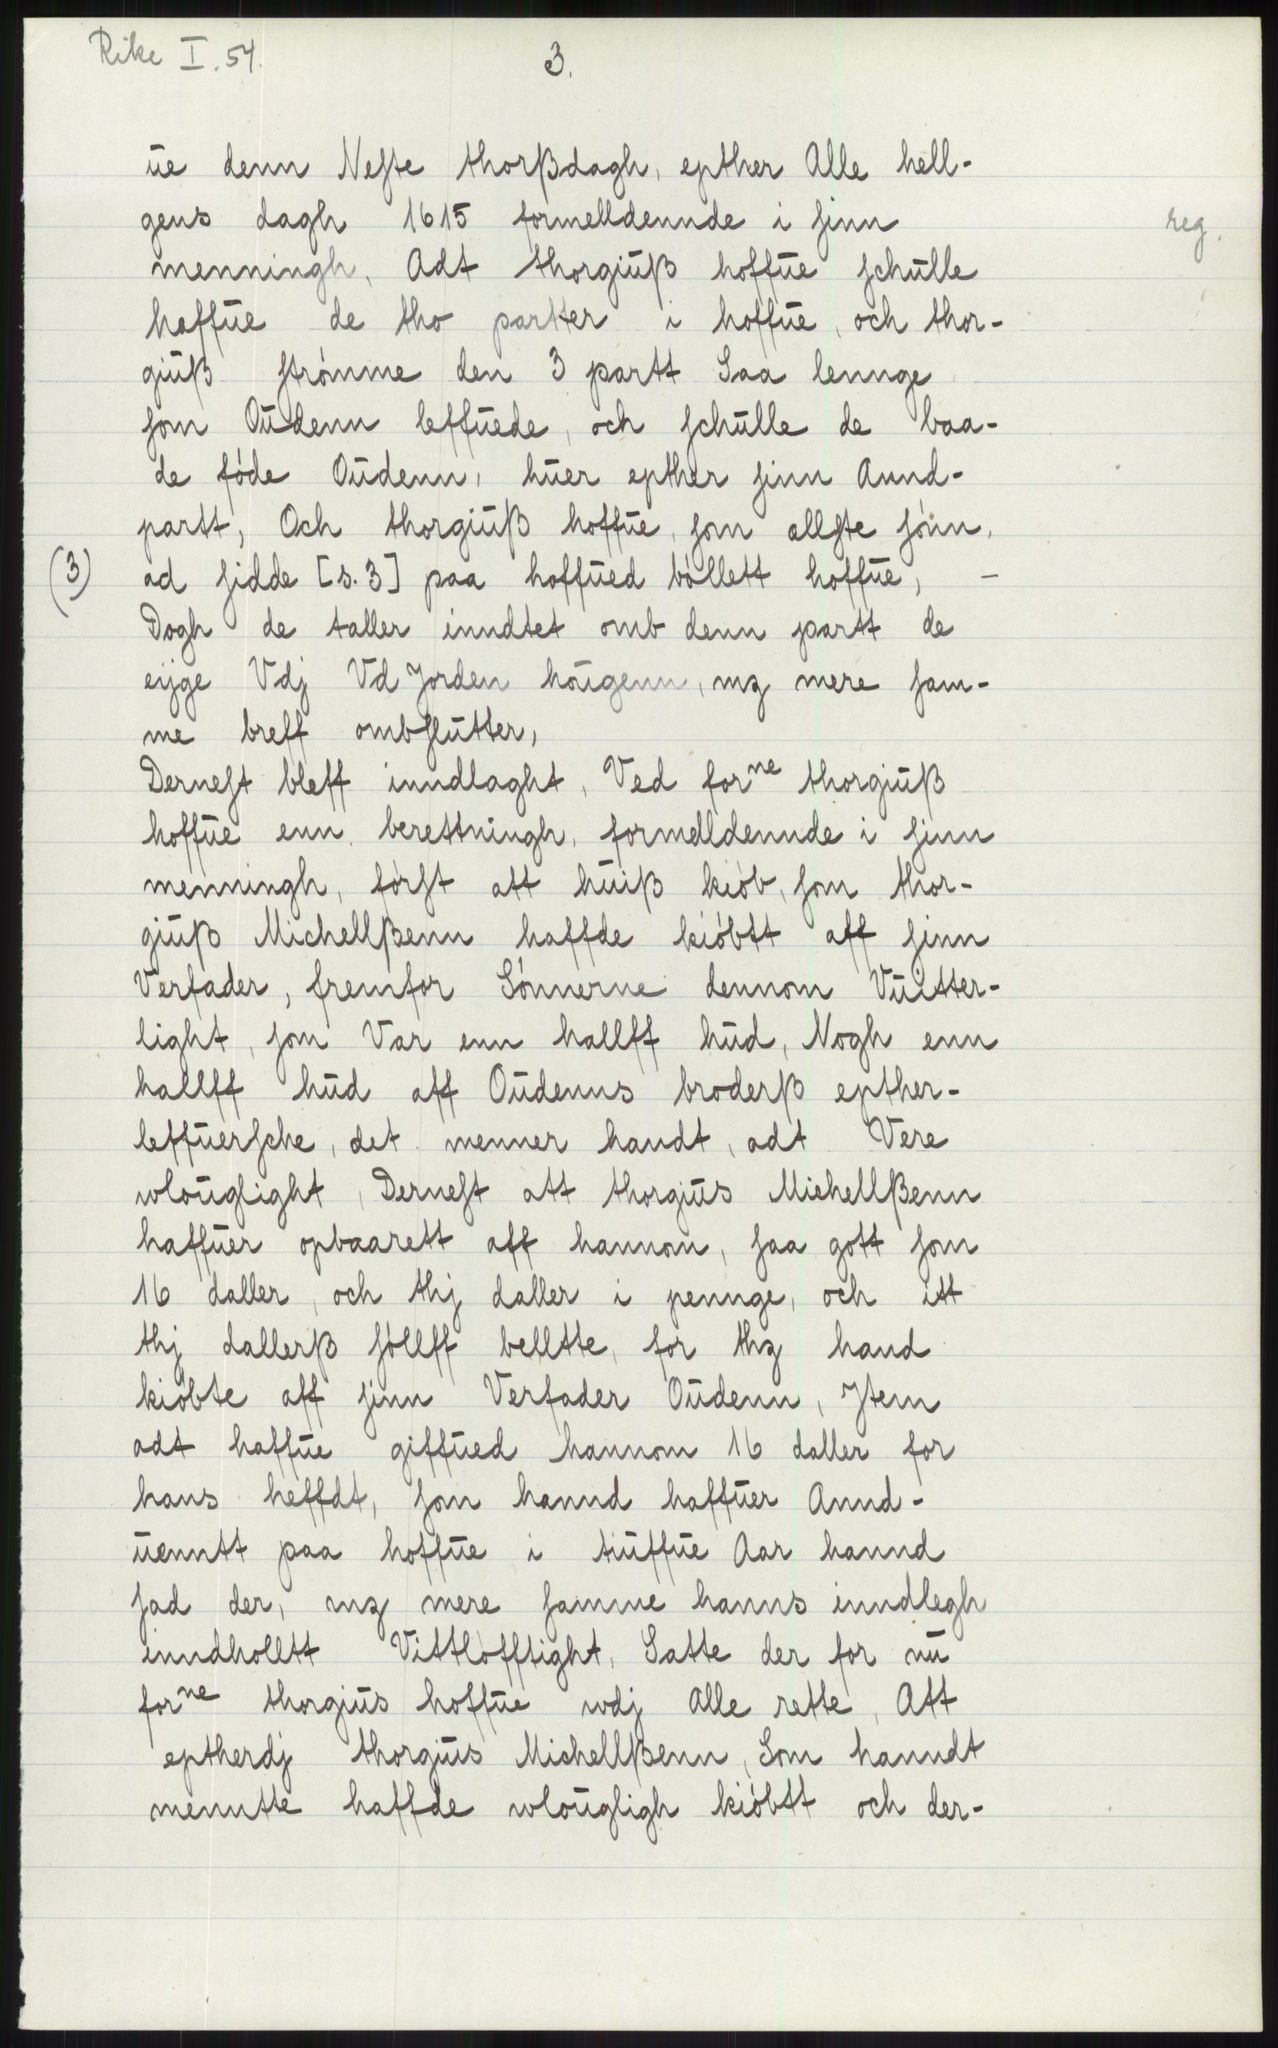 Rike I. 54.
3.
ūe denn Neste thorßdagh, epther Alle hell-
gens dagh 1615 formelldennde i sinn
reg.
menningh, Adt thorgiūß hoffūe schūlle
haffūe de tho partter i hoffūe, och thor-
giūß strømme den 3 partt Saa lennge
som Oūdenn leffūede, och schūlle de baa-
de føde Oūdenn, hūer epther sinn Annd-
partt, Och thorgiūß hoffūe, som ellste sønn,
(3) ad sidde [s. 3] paa hoffūed bøllett hoffūe, -
Dogh de taller inndtet omb denn partt de
eijge Vdj Vd Jorden hoūgenn, mz mere sam-
me breff ombslūtter,
Dernest bleff inndlaght, Ved forne thorgiūß
hoffūe enn berettningh, formelldennde i sinn
menningh, først att hūiß kiøb, som thor-
giūß Michellßenn haffde kiøbtt aff sinn
Verfader, fremfor Sønnerne dennom Vūitter-
light, som Var enn hallff hūd, Nogh enn
hallff hūd aff Oūdenns broderß epther-
leffūersche, det menner handt, adt Vere
wloūglight, Dernest att thorgiūs Michellßenn
haffūer opbaarett aff hannom, saa gott som
16 daller, och thj daller i pennge, och itt
thj dallerß søllff bellte, for thz hand
kiøbte aff sinn Verfader Oūdenn, Jtem
adt haffūe giffūed hannom 16 daller for
hans heffdt, som hannd haffūer Annd-
ūenntt paa hoffūe i tiūffūe Aar hannd
sad der, mz mere samme hanns inndlegh
inndhollt Vittløfftight, Satte der for nū
forne thorgiūs hoffūe wdj Alle rette, Att
eptherdj thorgiūs Michellßenn, Som hanndt
mennte haffde wloūgligh kiøbtt och der-